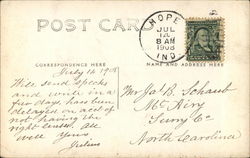 POST CARD
HOPE
JUL
14
8 AM
1908
IND.
CORRESPONDENCE HERE
NAME AND ADDRESS HERE
July 14 1908
Will send specks
and write in a
few days have been
delayed on acct of
not having the
right lenses. All
well Yours
Julius
Mr Jo B. Schaub
Mt Airy
Surry Co
North Carolina